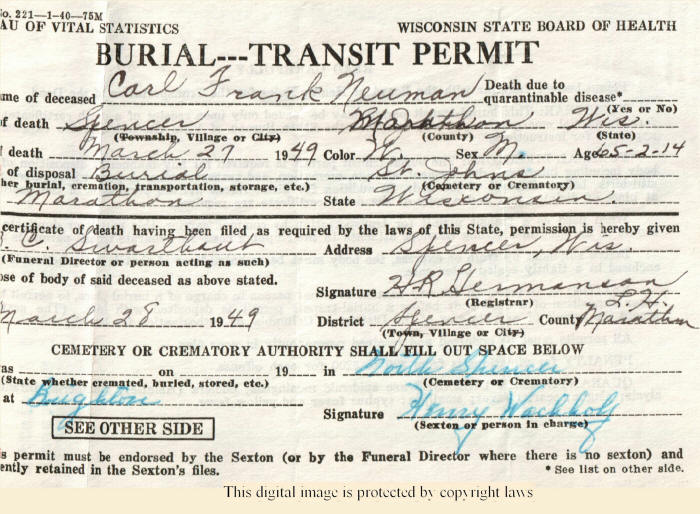 No. 221—1-40—75M
AU OF VITAL STATISTICS WISCONSIN STATE BOARD OF HEALTH
BURIAL---TRANSIT PERMIT
me of deceased Carl Frank Neuman Death due to quarantinable disease*
(Yes or No)
of death Spencer Marathon Wis.
(Township, Village or City) (County) (State)
death March 27 1949 Color W. Sex M. Age 65-2-14
of disposal Burial St. Johns
her burial, cremation, transportation, storage, etc.) (Cemetery or Crematory)
Marathon State Wisconsin
certificate of death having been filed as required by the laws of this State, permission is hereby given
C. Swarthout Address Spencer, Wis.
(Funeral Director or person acting as such)
ose of body of said deceased as above stated.
Signature H R Germanson
(Registrar) L.H.
March 28 1949 District Spencer County Marathon
(Town, Village or City)
CEMETERY OR CREMATORY AUTHORITY SHALL FILL OUT SPACE BELOW
as on 19 in North Spencer
(State whether cremated, buried, stored, etc.) (Cemetery or Crematory)
at Brighton
Signature Henry Wachholz
(Sexton or person in charge)
SEE OTHER SIDE
s permit must be endorsed by the Sexton (or by the Funeral Director where there is no sexton) and
ently retained in the Sexton's files. * See list on other side.
This digital image is protected by copyright laws